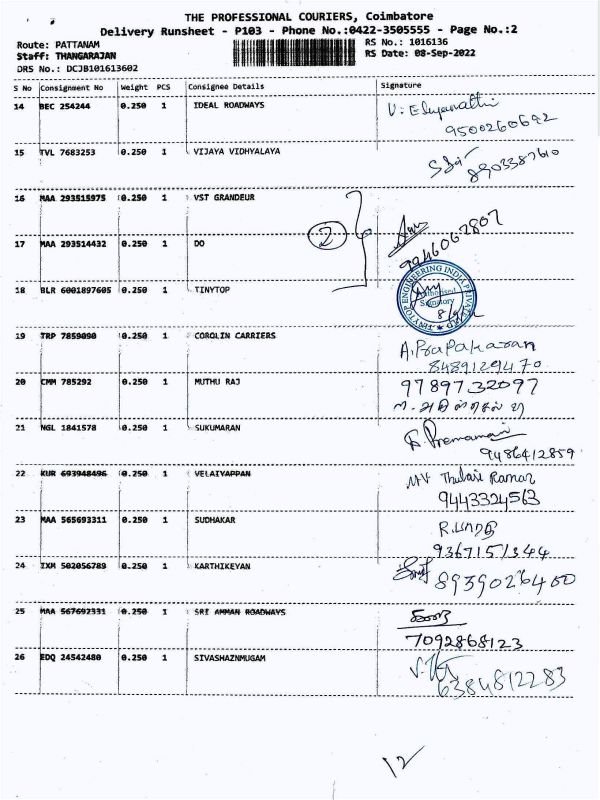 THE PROFESSIONAL COURIERS, Coimbatore
Delivery Runsheet - P103 - Phone No.:0422-3505555 - Page No.:2
Route: PATTANAM RS No.: 1016136
Staff: THANGARAJAN RS Date: 08-Sep-2022
DRS No.: DCJB101613602
S No Consignment No Weight PCS Consignee Details Signature
14 BEC 254244 0.250 1 IDEAL ROADWAYS
9500260692
15 TVL 7683253 0.250 1 VIJAYA VIDHYALAYA
16 MAA 293515975 0.250 1 VST GRANDEUR
2
17 MAA 293514432 0.250 1 DO
9946067807
18 BLR 6001897605 0.250 1 TINYTOP
TINYTOP ENGINEERING INDIA PRIVATE
Authorised
Signatory
19 TRP 7859090 0.250 1 COROLIN CARRIERS
A. Prapakaran
8489129470
20 CMM 785292 0.250 1 MUTHU RAJ
9789732097
21 NGL 1841578 0.250 1 SUKUMARAN
9486412859
22 KUR 693948496 0.250 1 VELAIYAPPAN
Thulasi Raman
9443324563
23 MAA 565693311 0.250 1 SUDHAKAR
9367151344
24 IXM 502056789 0.250 1 KARTHIKEYAN
8939026400
25 MAA 567692331 0.250 1 SRI AMMAN ROADWAYS
7092868123
26 EDQ 24542480 0.250 1 SIVASHAZNMUGAM
6384812283
12